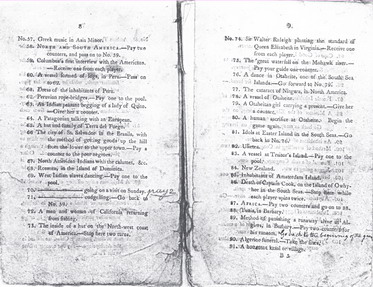 8
No. 57. Greek music in Asia Minor.
58. NORTH AND SOUTH AMERICA.—Pay two
counters, and pass on to No. 39.
59. Columbus's first interview with the Americans.
—Receive one from each player.
60. A wooden bridge in Peru.—Pass on
61. Dress of the inhabitants of Peru.
62. Peruvian rope-bridges.—Pay one to the pool.
63. An Indian peasant begging of a lady of Quito.
—Give her a counter.
64. A Patagonian talking with an European.
65. A hut and family of Terra del Fuego.
66. The city of St. Salvador in the Brazils, with
the method of getting goods up the hill
from the lower to the upper town.—Pay a
counter to the poor negroes.
67. North American Indians with the calumet, &c.
68. Roseau, in the Island of Dominica.
69. West Indian slaves dancing.—Pay one to the
pool.
70. going on a visit on Sunday.
71. cudgelling.—Go back to
No. 59.
72. A man and woman of California returning
from fishing.
73. The inside of a hut on the North-west coast
of America.—Stop here two turns.
9
No. 74. Sir Walter Raleigh planting the standard of
Queen Elizabeth in Virginia.—Receive one
from each player.
75. The great waterfall on the Mohawk river.—
Pay your guide one counter.
76. A dance in Otaheite, one of the South Sea
Islands.—Go forward to No.
77. The cataract of Niagara, in North America.
78. A vessel of Otaheite.
79. A Otaheitan girl carrying a present.—Give her
a counter.
80. A human sacrifice at Otaheite.—Begin the
game again.
81. Idols at Easter Island in the South Seas.—Go
back to No.
82. Ulietea.
83. A vessel at
pool.
84. New Zealand.
85. Inhabitants of Amsterdam Island.
86. Death of Captain Cook, on the Island of Owhy-
hee in the South Seas.—Stop here while
each player spins twice.
87. AFRICA.—Pay two counters and go on to 88.
88. Tunis, in Barbary.
89. Method of punishing
in Barbary.—Pay two counters for
90. Algerine funeral.—Take the
91. A Hottentot kraal or village.